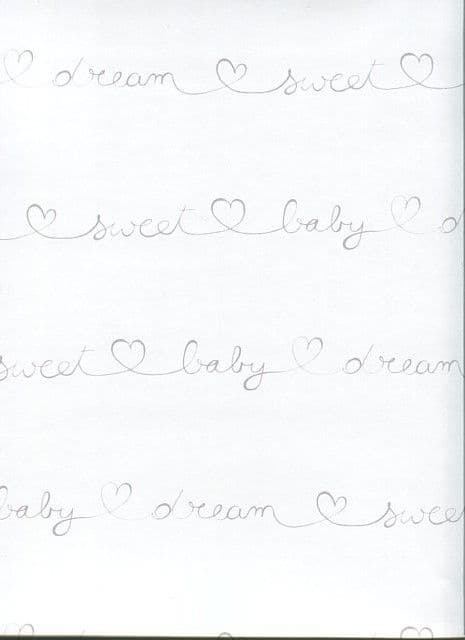 dream sweet
sweet baby d
sweet baby dream
baby dream swee